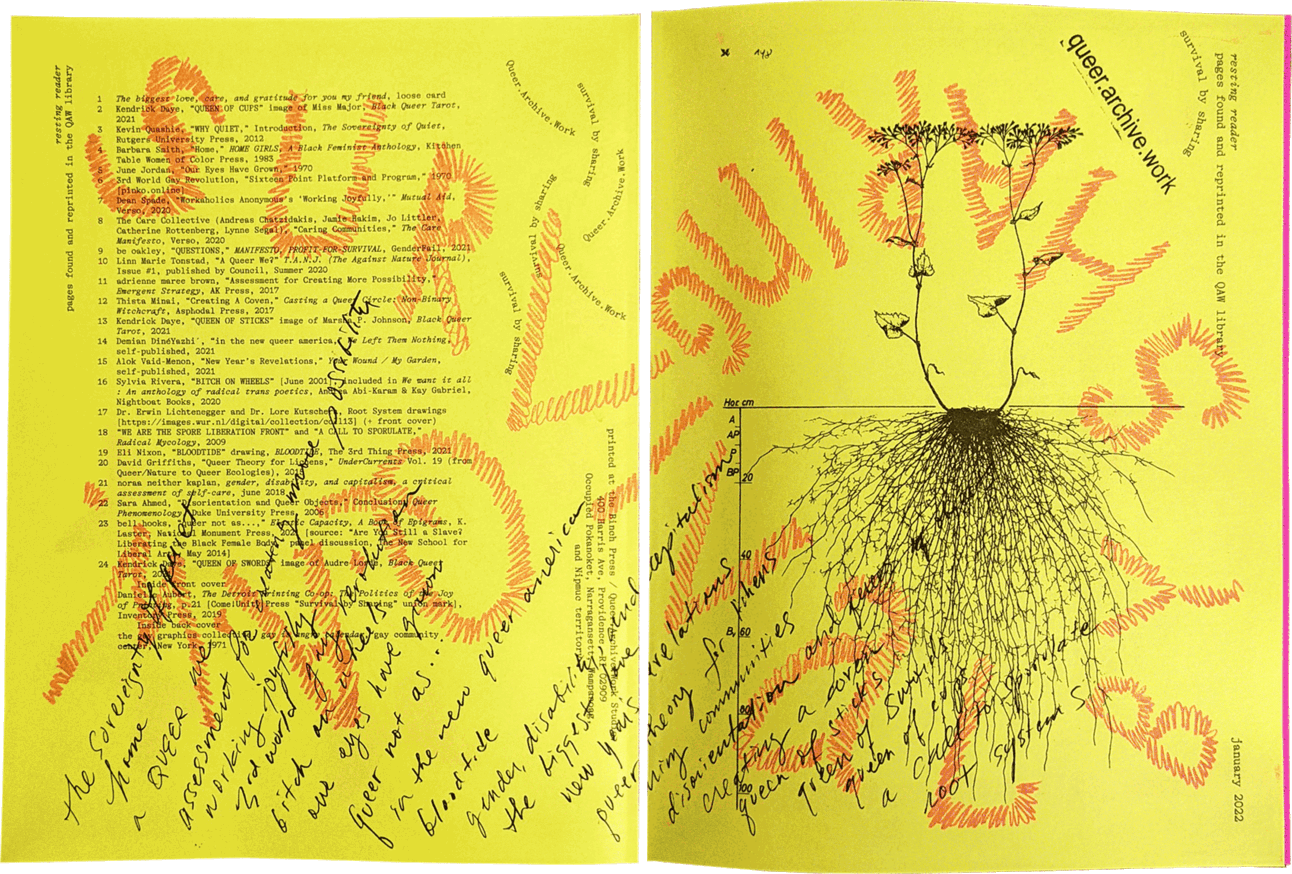 resting reader
pages found and reprinted in the QAW library
1 The biggest love, care, and gratitude for you my friend, loose card
2 Kendrick Daye, "QUEEN OF CUPS" image of Miss Major, Black Queer Tarot,
2021
3 Kevin Quashie, "WHY QUIET," Introduction, The Sovereignty of Quiet,
Rutgers University Press, 2012
4 Barbara Smith, "Home," HOME GIRLS, A Black Feminist Anthology, Kitchen
Table Women of Color Press, 1983
5 June Jordan, "Our Eyes Have Grown," 1970
6 3rd World Gay Revolution, "Sixteen Point Platform and Program," 1970
[pinko.online]
Dean Spade, "Workaholics Anonymous's 'Working Joyfully,'" Mutual Aid,
Verso, 2020
8 The Care Collective (Andreas Chatzidakis, Jamie Hakim, Jo Littler,
Catherine Rottenberg, Lynne Segal), "Caring Communities," The Care
Manifesto, Verso, 2020
9 be oakley, "QUESTIONS," MANIFESTO, PROFIT-FOR-SURVIVAL, GenderFail, 2021
10 Linn Marie Tonstad, "A Queer We?" T.A.N.J. (The Against Nature Journal),
Issue #1, published by Council, Summer 2020
11 adrienne maree brown, "Assessment for Creating More Possibility,"
Emergent Strategy, AK Press, 2017
12 Thista Minai, "Creating A Coven," Casting a Queer Circle: Non-Binary
Witchcraft, Asphodel Press, 2017
13 Kendrick Daye, "QUEEN OF STICKS" image of Marsha P. Johnson, Black Queer
Tarot, 2021
14 Demian DinéYazhi', "in the new queer america, We Left Them Nothing,
self-published, 2021
15 Alok Vaid-Menon, "New Year's Revelations," Your Wound / My Garden,
self-published, 2021
16 Sylvia Rivera, "BITCH ON WHEELS" [June 2001], included in We want it all
: An anthology of radical trans poetics, Andrea Abi-Karam & Kay Gabriel,
Nightboat Books, 2020
17 Dr. Erwin Lichtenegger and Dr. Lore Kutschera, Root System drawings
[https://images.wur.nl/digital/collection/coll13] (+ front cover)
18 "WE ARE THE SPORE LIBERATION FRONT" and "A CALL TO SPORULATE,"
Radical Mycology, 2009
19 Eli Nixon, "BLOODTIDE" drawing, BLOODTIDE, The 3rd Thing Press, 2021
20 David Griffiths, "Queer Theory for Lichens," UnderCurrents Vol. 19 (from
Queer/Nature to Queer Ecologies),
21 noraa neither kaplan, gender, disability, and capitalism, a critical
assessment of self-care, june 2018
22 Sara Ahmed, "Disorientation and Queer Objects," Conclusion, Queer
Phenomenology, Duke University Press, 2006
23 bell hooks, "queer not as...," Erotic Capacity, A Book of Epigrams, K.
Laster, National Monument Press, [source: "Are You Still a Slave?
Liberating the Black Female Body" panel discussion, The New School for
Liberal Arts, May 2014]
24 Kendrick Daye, "QUEEN OF SWORDS" image of Audre Lorde, Black Queer
Tarot,
Inside front cover
Danielle Aubert, The Detroit Printing Co-op: The Politics of the Joy
of Printing, p.21 [Come!Unity Press "Survival by Sharing" union mark],
Inventory Press, 2019
Inside back cover
the gay graphics collective, gay is angry calendar, gay community
center, New York, 1971
Queer.Archive.Work
survival by sharing
Queer.Archive.Work
survival by sharing
Queer.Archive.Work
survival by sharing
printed at the Binch Press / Queer.Archive.Work Studio
400 Harris Ave, Providence, RI 02909
Occupied Pokanoket, Narragansett, Wampanoag,
and Nipmuc territories
the sovereignty of quiet
home
a queer we
assessment for creating more possibility
working joyfully
3rd world gay revolution
bitch on wheels
our eyes have grown
queer not as...
in the new queer america
bloodtide
gender, disability and capitalism
the biggest
new years revelations
queer theory for lichens
caring communities
disorientation and queer
creating a coven
queen of sticks
queen of swords
queen of cups
a call to sporulate
root systems
queer.archive.work
survival by sharing
resting reader
pages found and reprinted in the QAW library
Hor. cm
A
AP
P
BP
20
40
60
80
100
january 2022